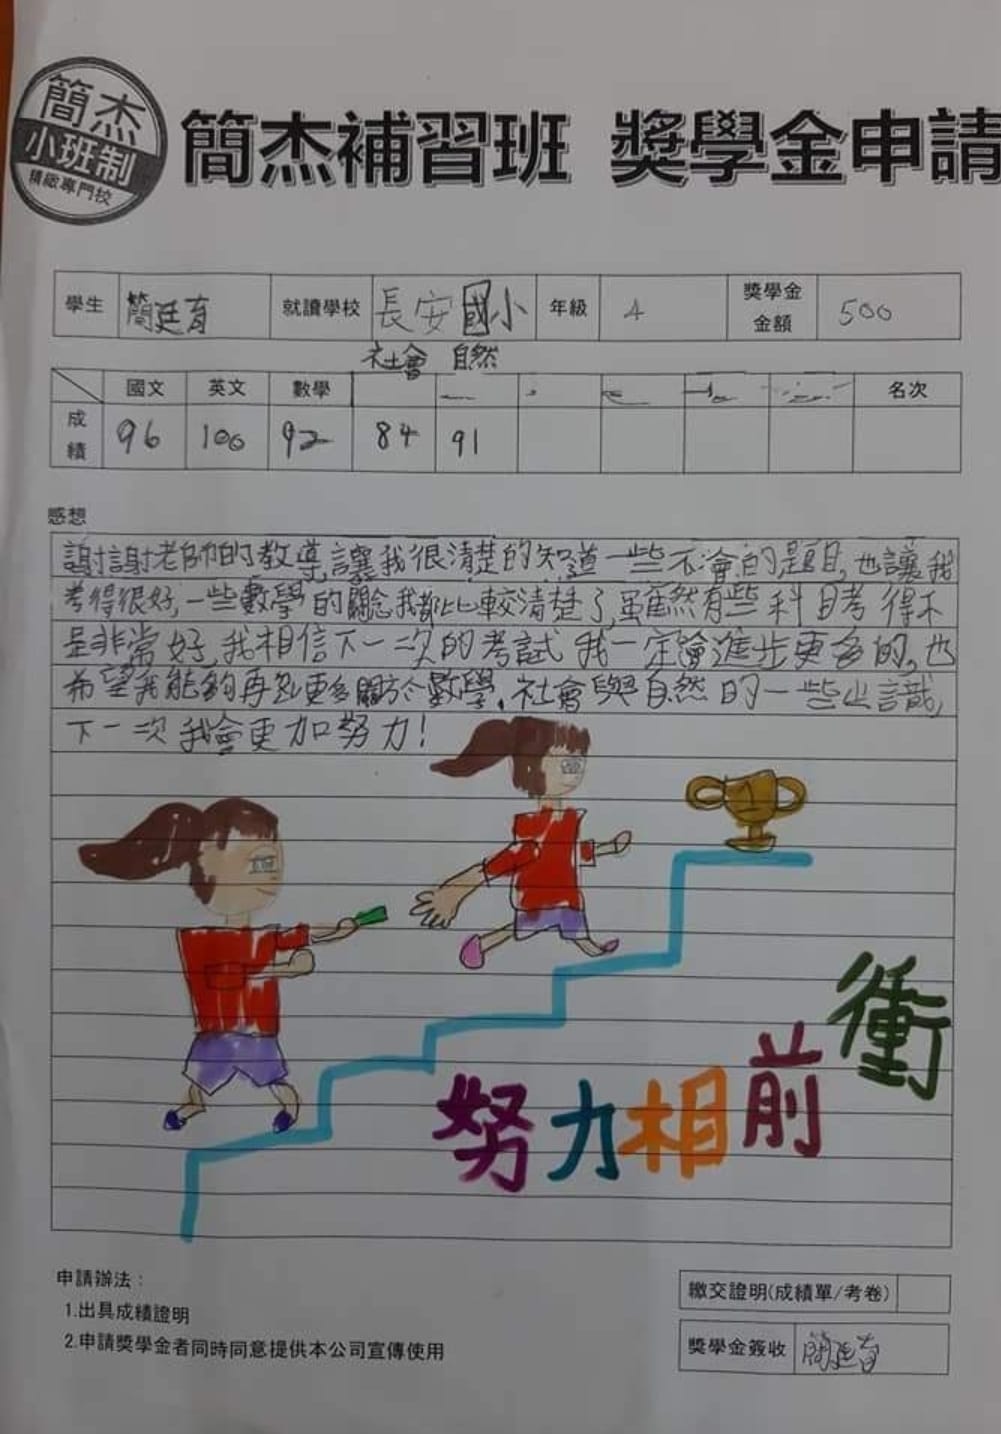 簡杰
小班制
積緻專門校
簡杰補習班 獎學金申請
學生 簡廷育 就讀學校 長安國小 年級 4 獎學金金額 500
社會 自然
國文 英文 數學 名次
成績 96 100 92 84 91
感想
謝謝老師的教導,讓我很清楚的知道一些不會的題目,也讓我
考得很好,一些數學的觀念我都比較清楚了,雖然有些科目考得不
是非常好,我相信下一次的考試我一定會進步更多的,也
希望我能夠再 更多關於數學、社會與自然的一些 識,
下一次我會更加努力!
努力相前衝
申請辦法:
1.出具成績證明
2.申請獎學金者同時同意提供本公司宣傳使用
繳交證明(成績單/考卷)
獎學金簽收 簡廷育